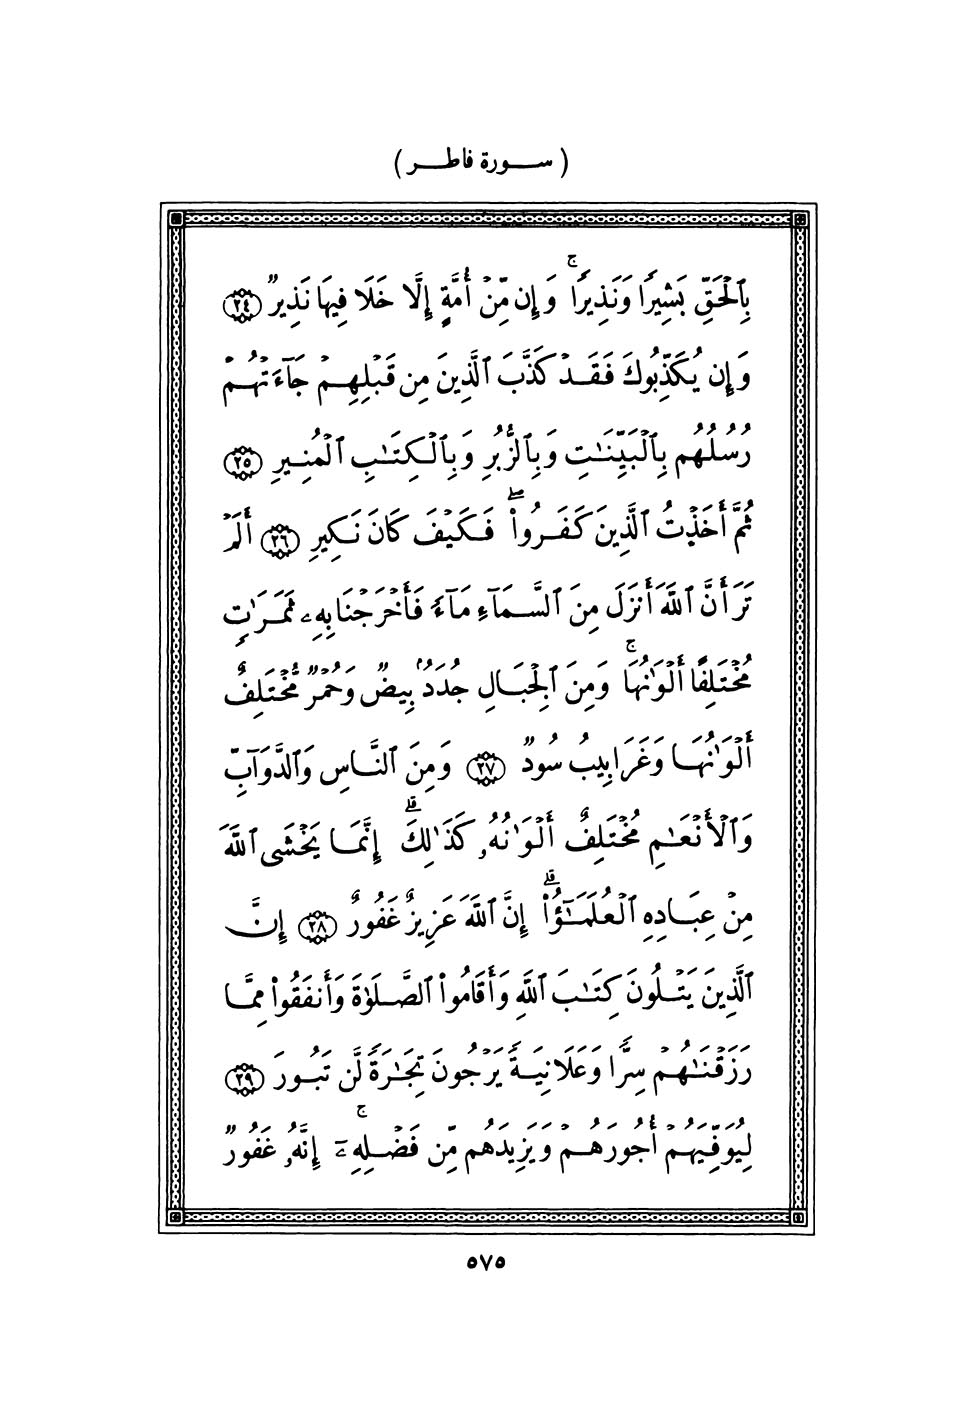 ( ســـورة فاطـــر )
بِٱلْحَقِّ بَشِيرًا وَنَذِيرًا ۚ وَإِن مِّنْ أُمَّةٍ إِلَّا خَلَا فِيهَا نَذِيرٌ ﴿٢٤﴾
وَإِن يُكَذِّبُوكَ فَقَدْ كَذَّبَ ٱلَّذِينَ مِن قَبْلِهِمْ جَآءَتْهُمْ
رُسُلُهُم بِٱلْبَيِّنَـٰتِ وَبِٱلزُّبُرِ وَبِٱلْكِتَـٰبِ ٱلْمُنِيرِ ﴿٢٥﴾
ثُمَّ أَخَذْتُ ٱلَّذِينَ كَفَرُوا۟ ۖ فَكَيْفَ كَانَ نَكِيرِ ﴿٢٦﴾ أَلَمْ
تَرَ أَنَّ ٱللَّهَ أَنزَلَ مِنَ ٱلسَّمَآءِ مَآءً فَأَخْرَجْنَا بِهِۦ ثَمَرَٰتٍ
مُّخْتَلِفًا أَلْوَٰنُهَا ۚ وَمِنَ ٱلْجِبَالِ جُدَدٌۢ بِيضٌ وَحُمْرٌ مُّخْتَلِفٌ
أَلْوَٰنُهَا وَغَرَابِيبُ سُودٌ ﴿٢٧﴾ وَمِنَ ٱلنَّاسِ وَٱلدَّوَآبِّ
وَٱلْأَنْعَـٰمِ مُخْتَلِفٌ أَلْوَٰنُهُۥ كَذَٰلِكَ ۗ إِنَّمَا يَخْشَى ٱللَّهَ
مِنْ عِبَادِهِ ٱلْعُلَمَـٰٓؤُا۟ ۗ إِنَّ ٱللَّهَ عَزِيزٌ غَفُورٌ ﴿٢٨﴾ إِنَّ
ٱلَّذِينَ يَتْلُونَ كِتَـٰبَ ٱللَّهِ وَأَقَامُوا۟ ٱلصَّلَوٰةَ وَأَنفَقُوا۟ مِمَّا
رَزَقْنَـٰهُمْ سِرًّا وَعَلَانِيَةً يَرْجُونَ تِجَـٰرَةً لَّن تَبُورَ ﴿٢٩﴾
لِيُوَفِّيَهُمْ أُجُورَهُمْ وَيَزِيدَهُم مِّن فَضْلِهِۦٓ ۚ إِنَّهُۥ غَفُورٌ
٥٧٥